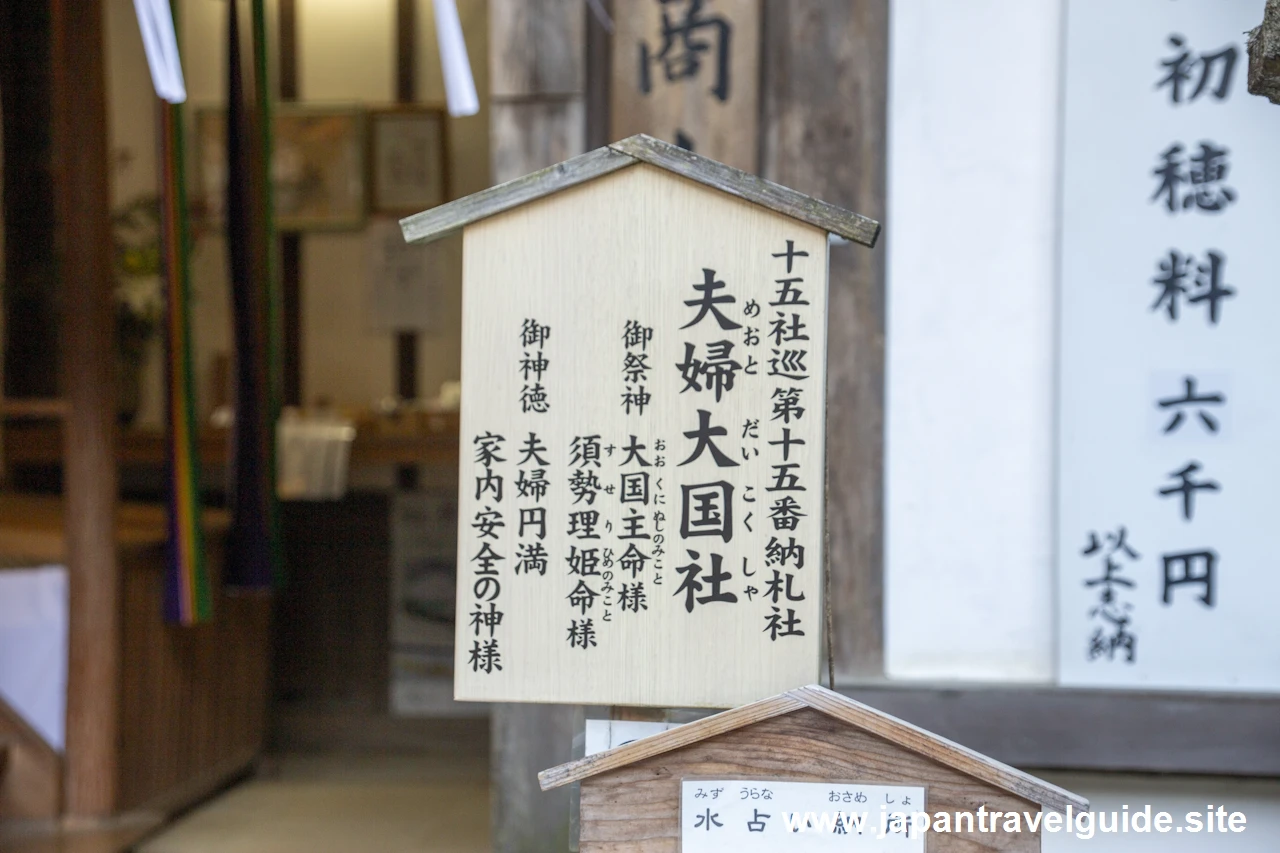 十五社巡 第十五番納札社
めおと だい こく しゃ
夫婦大国社
おお くに ぬしのみこと
御祭神 大国主命様
す せ り ひめのみこと
須勢理姫命様
御神徳 夫婦円満
家内安全の神様
商
初穂料 六千円
以上志納
みず うらな おさめ しょ
水占い納所
www.japantravelguide.site